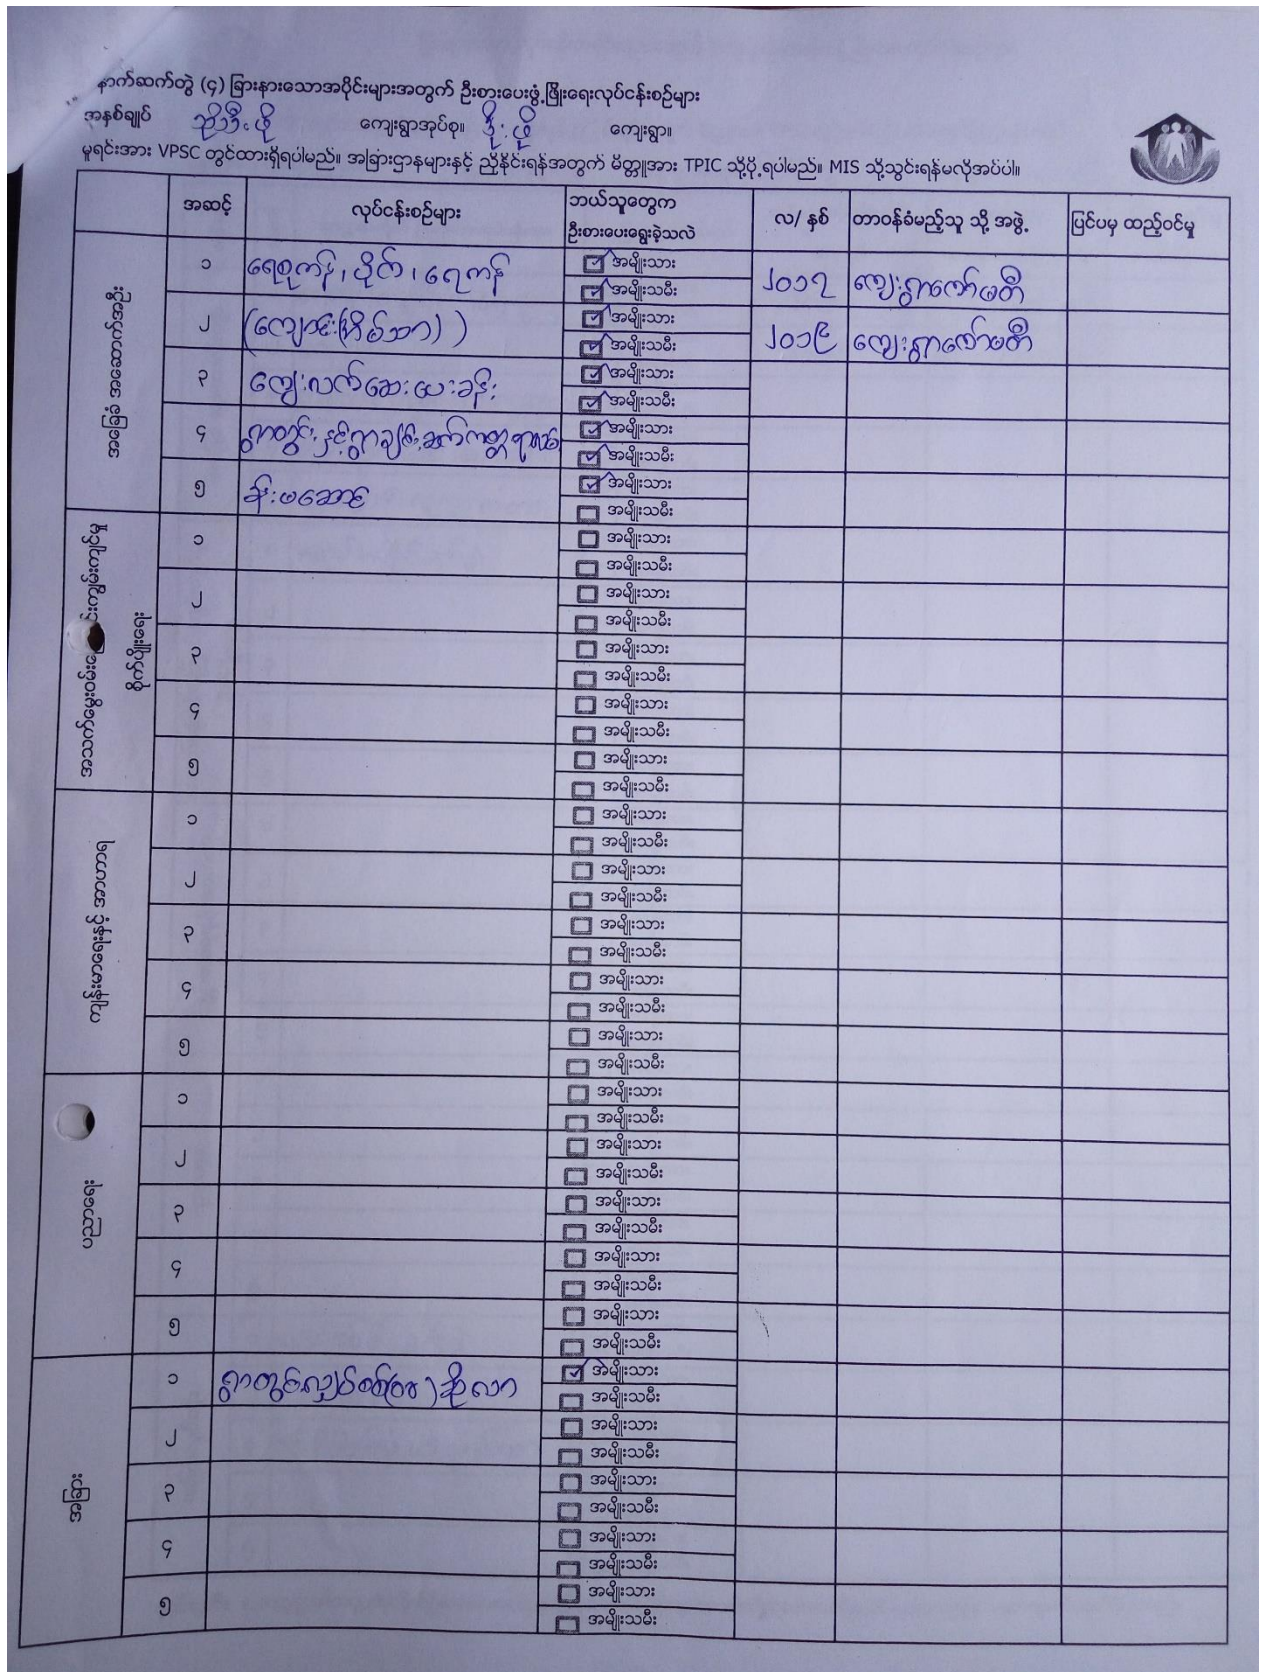 နောက်ဆက်တွဲ (၄) ခြားနားသောအပိုင်းများအတွက် ဦးစားပေးဖွံ့ဖြိုးရေးလုပ်ငန်းစဉ်များ
အနှစ်ချုပ် ကျေးရွာအုပ်စု။ ကျေးရွာ။
မူရင်းအား VPSC တွင်ထားရှိရပါမည်။ အခြားဌာနများနှင့် ညှိနှိုင်းရန်အတွက် မိတ္တူအား TPIC သို့ပို့ရပါမည်။ MIS သို့သွင်းရန်မလိုအပ်ပါ။
အဆင့် လုပ်ငန်းစဉ်များ ဘယ်သူတွေက ဦးစားပေးရွေးခဲ့သလဲ လ/ နှစ် တာဝန်ခံမည့်သူ သို့ အဖွဲ့ ပြင်ပမှ ထည့်ဝင်မှု
အခြေခံ အဆောက်အဦး
၁ ရေစုကန်၊ ပိုက်၊ ရေကန် အမျိုးသား ၂၀၁၇ ကျေးရွာကော်မတီ
အမျိုးသမီး
၂ အမျိုးသား ၂၀၁၉ ကျေးရွာကော်မတီ
အမျိုးသမီး
၃ ကျေးလက်ဆေးပေးခန်း အမျိုးသား
အမျိုးသမီး
၄ ရွာတွင်းနှင့်ရွာချင်းဆက် အမျိုးသား
အမျိုးသမီး
၅ အမျိုးသား
အမျိုးသမီး
၁ အမျိုးသား
အမျိုးသမီး
၂ အမျိုးသား
အမျိုးသမီး
၃ အမျိုးသား
အမျိုးသမီး
၄ အမျိုးသား
အမျိုးသမီး
၅ အမျိုးသား
အမျိုးသမီး
၁ အမျိုးသား
အမျိုးသမီး
၂ အမျိုးသား
အမျိုးသမီး
၃ အမျိုးသား
အမျိုးသမီး
၄ အမျိုးသား
အမျိုးသမီး
၅ အမျိုးသား
အမျိုးသမီး
ပညာရေး
၁ အမျိုးသား
အမျိုးသမီး
၂ အမျိုးသား
အမျိုးသမီး
၃ အမျိုးသား
အမျိုးသမီး
၄ အမျိုးသား
အမျိုးသမီး
၅ အမျိုးသား
အမျိုးသမီး
အခြား
၁ အမျိုးသား
အမျိုးသမီး
၂ အမျိုးသား
အမျိုးသမီး
၃ အမျိုးသား
အမျိုးသမီး
၄ အမျိုးသား
အမျိုးသမီး
၅ အမျိုးသား
အမျိုးသမီး